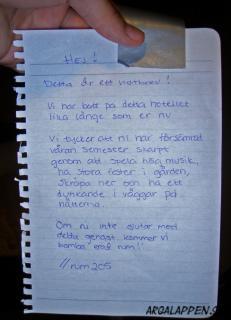 Hej!
Detta är ett klottbrev!
Vi har bott på detta hotellet
lika länge som er nu
Vi tycker att ni har försämrat
våran semester skarpt
genom att spela hög musik,
ha stora fester i gården,
skräpa ner och ha ett
dunkande i väggar på
nätterna.
Om ni inte slutar med
detta genast kommer vi
bomba erat rum!
//rum 205
ARGALAPPEN.